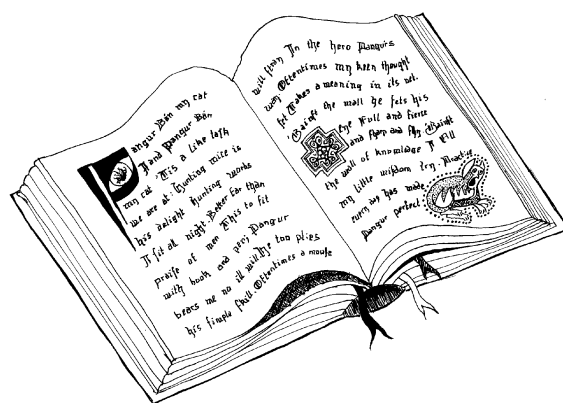 Pangur Bán my cat
I and Pangur Bán
my cat 'Tis a like task
we are at: Hunting mice is
his delight hunting words
I sit at night. Better far than
praise of men 'Tis to sit
with book and pen; Pangur
bears me no ill will He too plies
his simple skill. Oftentimes a mouse
will stray In the hero Pangurs
way Oftentimes my keen thought
set Takes a meaning in its net.
'Gainst the wall he sets his
eye Full and fierce
and sharp and sly 'Gainst
the wall of knowledge I
my little wisdom try. Practice
every day has made
Pangur perfect